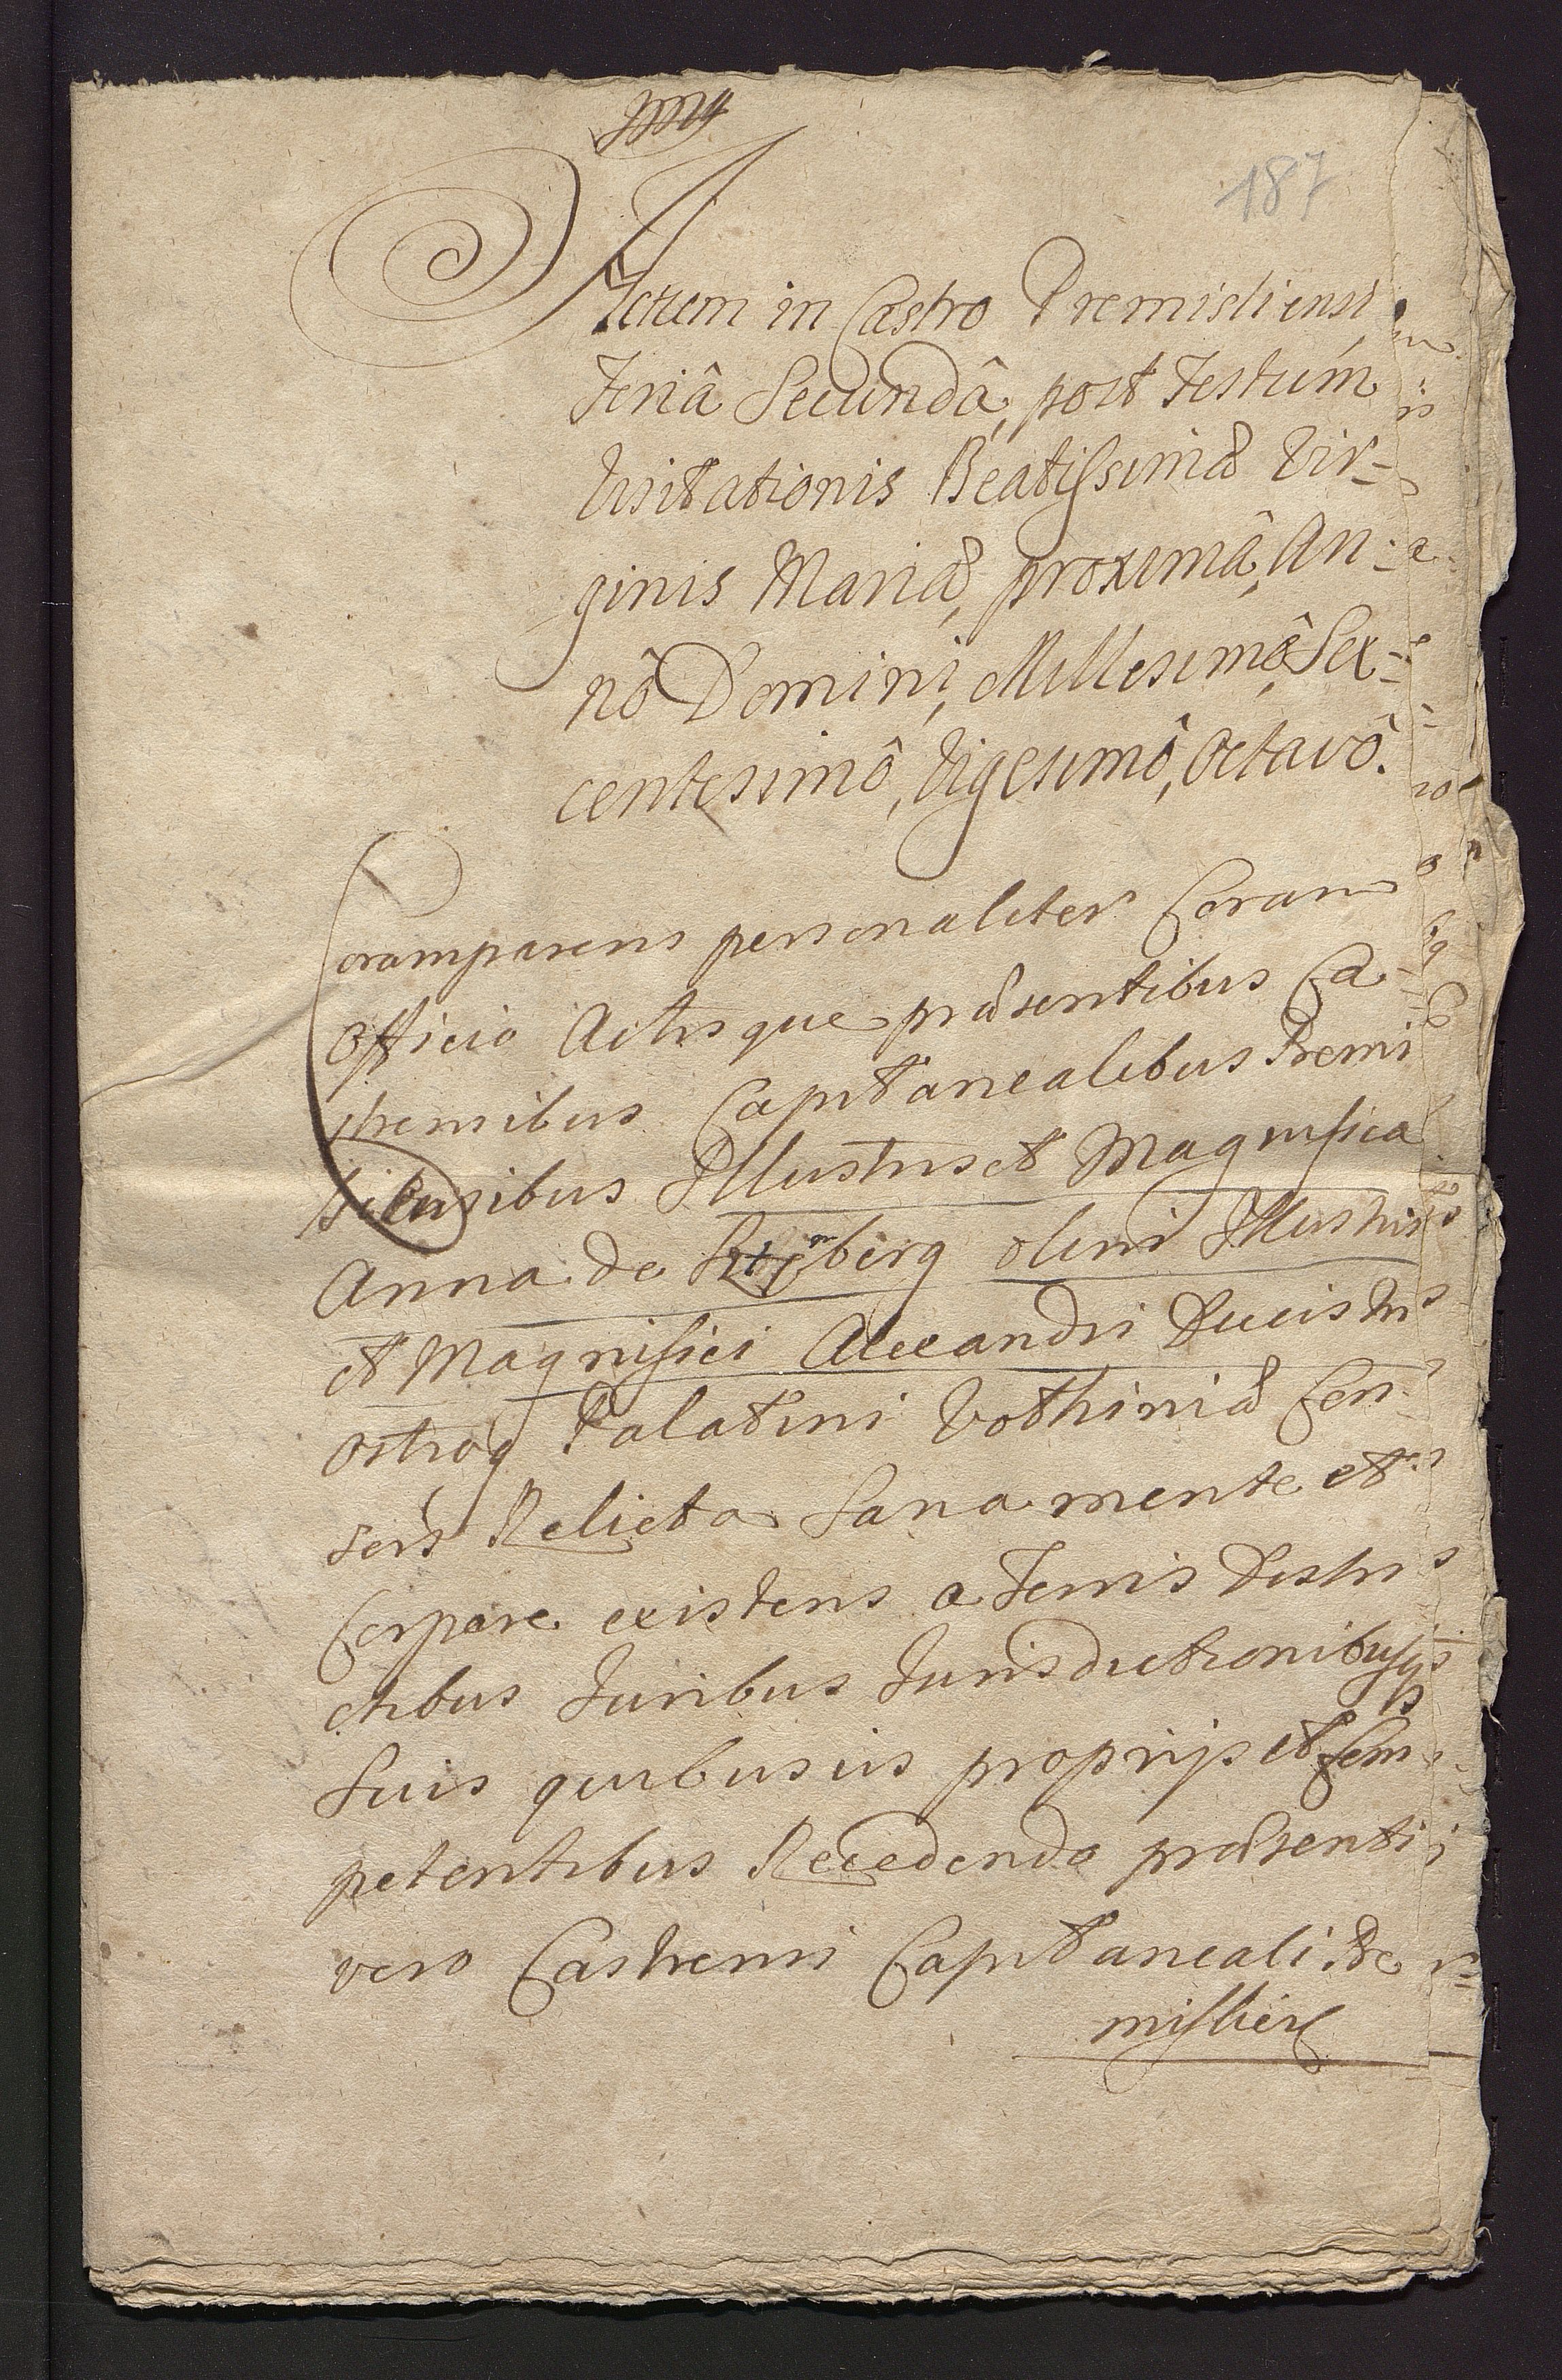 187
Actum in Castro Premisliensi,
Feriâ Secundâ, post Festúm
Visitationis Beatissimæ Vir-
ginis Mariæ, proximâ, An-
nô Domini, Millesimô, Sex-
centesimô, Vigesimô, Octavô.
Coramparens personaliter Coram
Officio Actisque præsentibus Ca
strensibus Capitanealibus Premi
sliensibus Illustris et Magnifica
Anna de berg olim Illustris
et Magnifici Alexandri Ducis in
Ostrog Palatini Volhiniæ Con
sors Relicta Sana mente et
Corpore existens a Terris Distri
ctibus Iuribus Iurisdictionibusque
Suis quibusvis proprijs et Com
petentibus Recedendo præsenti
vero Castrensi Capitaneali Pre
mislien